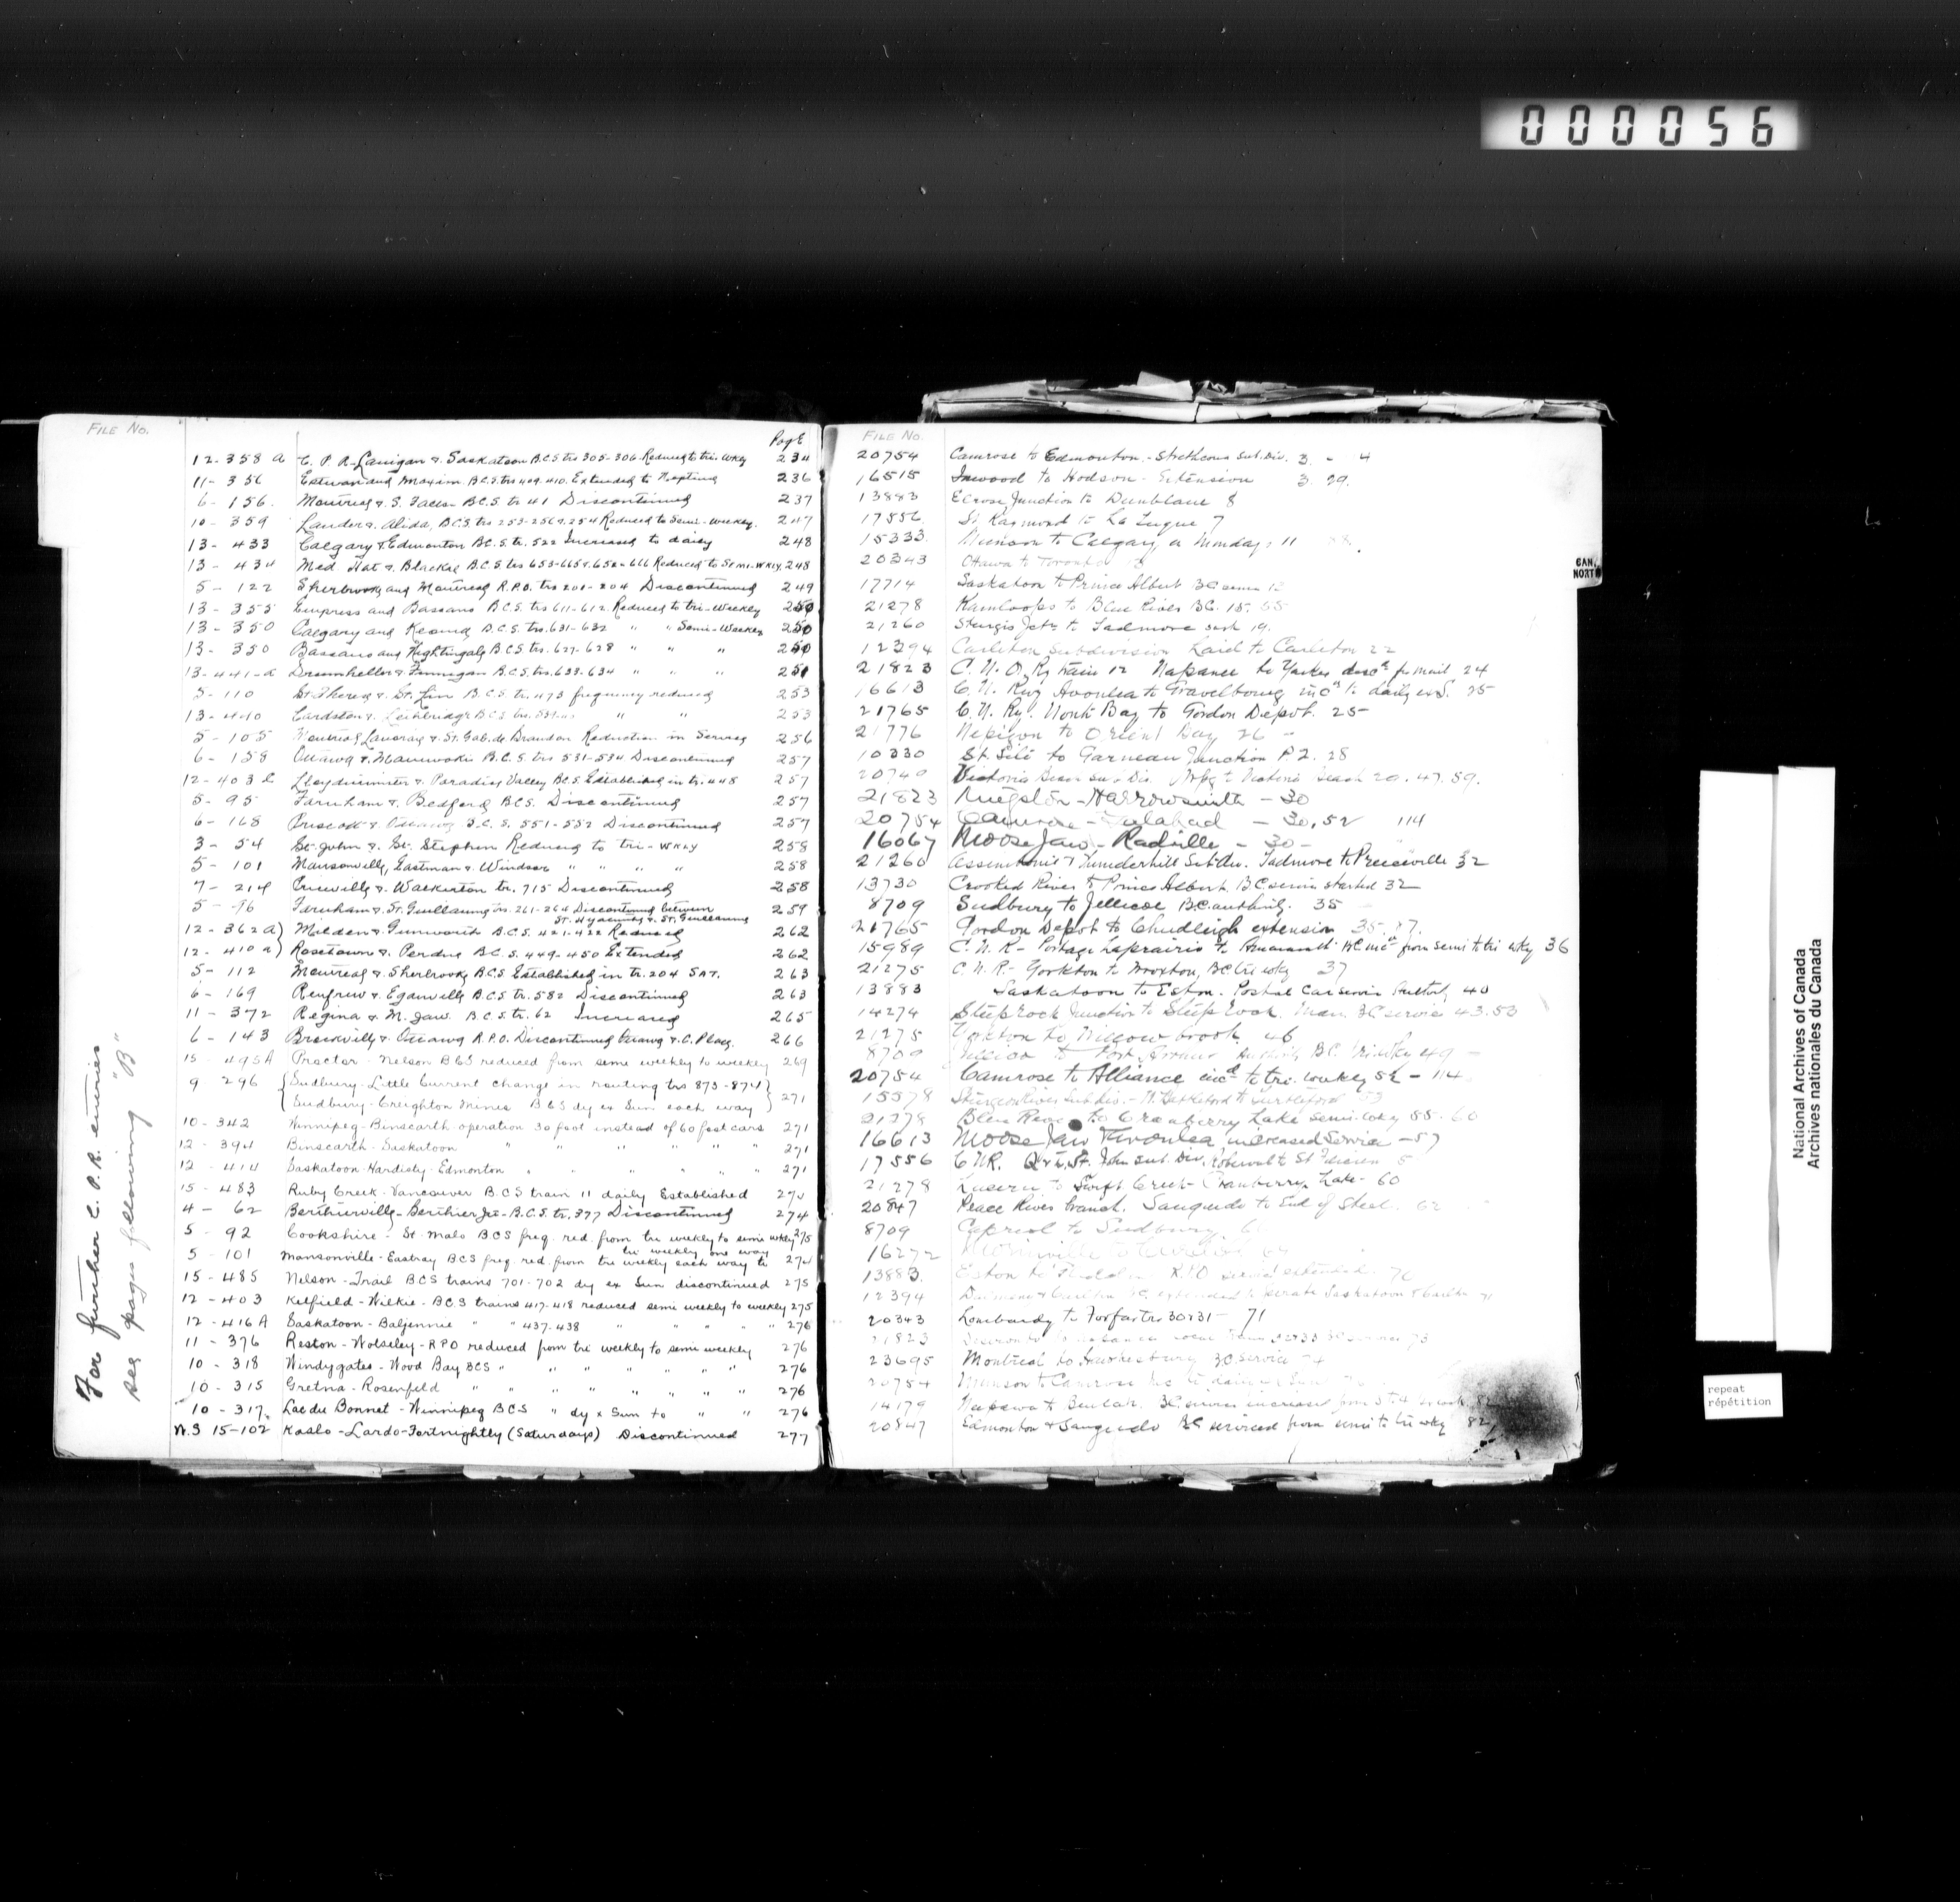 000056
FILE No.
Page
12-358 a C. P. R. Lanigan & Saskatoon B.C.S trs 305-306 Reduced to tri-wkly 234
11-356 Estevan and Maxim B.C.S. trs 409-410 Extended to Neptune 236
6-156. Montreal & S. Falls B.C.S. tr 41 Discontinued 237
10-359 Lauder & Alida, B.C.S trs 253-256 & 254 Reduced to Semi-Weekly. 247
13-433 Calgary & Edmonton B.C.S. tr. 522 Increased to daily 248
13-434 Med. Hat & Blackie B.C.S trs 653-665 & 652-666 Reduced to Semi-Wkly. 248
5-122 Sherbrooke and Montreal R.P.O. trs 201-204 Discontinued 249
13-355 Empress and Bassano B.C.S. trs 611-612 Reduced to tri-Weekly 250
13-350 Calgary and Keoma B.C.S. trs. 631-632 " " Semi-Weekly 250
13-350 Bassano and Nightingale B.C.S trs. 627-628 " " " 250
13-441-a Drumheller & Finnigan B.C.S. trs. 633-634 " " " 251
5-110 St. Therese & St. Lin B.C.S. tr. 473 frequency reduced 253
13-440 Cardston & Lethbridge B.C.S trs. " " 253
5-105 Montreal Lanoraie & St. Gab. de Brandon Reduction in Service 256
6-158 Ottawa & Maniwaki B.C.S. trs 531-534 Discontinued 257
12-403 Lloydminster & Paradise Valley B.C.S. Established in tr. 448 257
5-95 Farnham & Bedford B.C.S. Discontinued 257
6-168 Prescott & Ottawa B.C.S. 551-552 Discontinued 257
3-54 St. John & St. Stephen Reduced to tri-wkly 258
5-101 Mansonville, Eastman & Windsor " " " 258
7-214 Priceville & Walkerton tr. 715 Discontinued 258
5-96 Farnham & St. Guillaume trs. 261-264 Discontinued between 259
St. Hyacinthe & St. Guillaume
12-362a) Milden & Gunworth B.C.S. 421-422 Reduced 262
12-410a) Rosetown & Perdue B.C.S. 449-450 Extended 262
5-112 Montreal & Sherbrooke B.C.S Established in tr. 204 SAT. 263
6-169 Renfrew & Eganville B.C.S tr. 582 Discontinued 263
11-372 Regina & M. Jaw. B.C.S. tr. 62 Increased 265
6-143 Brockville & Ottawa R.P.O. Discontinued Ottawa & C. Place. 266
15-495A Procter - Nelson BCS reduced from semi weekly to weekly 269
9 296 {Sudbury-Little Current change in routing trs 873-874}
{Sudbury-Creighton Mines BCS dy ex Sun each way} 271
10-342 Winnipeg-Binscarth operation 30 foot instead of 60 foot cars 271
12-394 Binscarth-Saskatoon " " " " " 271
12-414 Saskatoon-Hardisty-Edmonton " " " " " " 271
15-483 Ruby Creek-Vancouver B.C.S train 11 daily Established 272
4-62 Berthierville-Berthier Jct-B.C.S. tr. 377 Discontinued 274
5-92 Cookshire - St. Malo BCS freq. red. from tri weekly to semi wkly 275
tri weekly one way
5-101 Mansonville-Eastray BCS freq. red. from tri weekly each way to 274
15-485 Nelson-Trail BCS trains 701-702 dy ex Sun discontinued 275
12-403 Kelfield-Wilkie-BCS trains 417-418 reduced semi weekly to weekly 275
12-416A Saskatoon-Baljennie " " 437-438 " " " " 276
11-376 Reston-Wolseley-RPO reduced from tri weekly to semi weekly 276
10-318 Windygates-Wood Bay BCS " " " " " " 276
10-315 Gretna-Rosenfeld " " " " " " " " 276
10-317 Lac du Bonnet-Winnipeg BCS " dy x Sun to " " 276
N.S 15-102 Kaslo-Lardo-Fortnightly (Saturdays) Discontinued 277
For further C. P. R. entries
see pages following "B"
FILE No.
20754 Camrose to Edmonton-Strathcona Sub. Div. 3 - 4
16515 Inwood to Hodson Extension 3. 29.
13883 Elrose Junction to Dunblane 8
17556 St Raymond to La Tuque 7
15333 Munson to Calgary on Monday 11
20343 Ottawa to Toronto
17714 Saskatoon to Prince Albert BC 12
21278 Kamloops to Blue River BC. 15. 55
21260 Sturgis Jctn to Tadmore 19.
12394 Carleton subdivision Laird to Carleton 22
21823 C. N. O. Ry train 12 Napanee to Yarker disc'd for mail 24
16613 C. N. Rwy Avonlea to Gravelbourg inc'd to daily ex S. 25
21765 C. N. Ry. North Bay to Gordon Depot. 25
21776 Nipigon to Orient Bay 26
10330 St. Tite to Garneau Junction P 2. 28
20740 Victoria Beach Sub Div. Wpg to Victoria Beach 20. 47. 59.
21823 Kingston-Harrowsmith - 30
20754 Camrose- - 30, 52 114
16067 Moose Jaw - Radville - 30 -
21260 Assiniboine & Thunderhill Sub div. Tadmore to Preeceville 32
13730 Crooked River to Prince Albert B.C. service started 32
8709 Sudbury to Jellicoe B.C. authority. 35
21765 Gordon Depot to Chudleigh extension 35. 87.
15989 C. N. R - Portage Laprairie to Amaranth BC inc'd from semi to tri wky 36
21275 C. N. R - Yorkton to Wroxton, BC tri wky 37
13883 Saskatoon to Eston. Postal Car service Authority 40
14274 Steeprock Junction to Steep Rock. Man. BC service 43. 53
21275 Yorkton to Willowbrook 46
8709 Jellicoe to Port Arthur Authority BC. triwky 49
20754 Camrose to Alliance inc'd to tri. weekly 52 - 114
15378 Sturgeon River Sub div. - N. Battleford to Turtleford 53
21278 Blue River to Cranberry Lake semi-wky 55. 60
16613 Moose Jaw Avonlea increased Service - 57
17556 CNR. Q & L. St. John sub. Div. Roberval to St Felicien 5
21278 Lucerne to Swift Creek Cranberry Lake - 60
20847 Peace River branch. Sangudo to End of Steel. 62
8709 Capreol to Sudbury
16272
13883. Eston to RPO service extended. 70
12394 Saskatoon & Carlton 71
20343 Lombardy to Forfar trs 30 & 31 - 71
21823 Deseronto to Napanee 73
23695 Montreal to Hawkesbury BC service 74
20754 Munson to Camrose
14179 Neepawa to BC service increased from 3 to 4 82
20847 Edmonton & Sangudo BC serviced from semi to tri wky 82
CAN.
NORTH
National Archives of Canada
Archives nationales du Canada
repeat
répétition